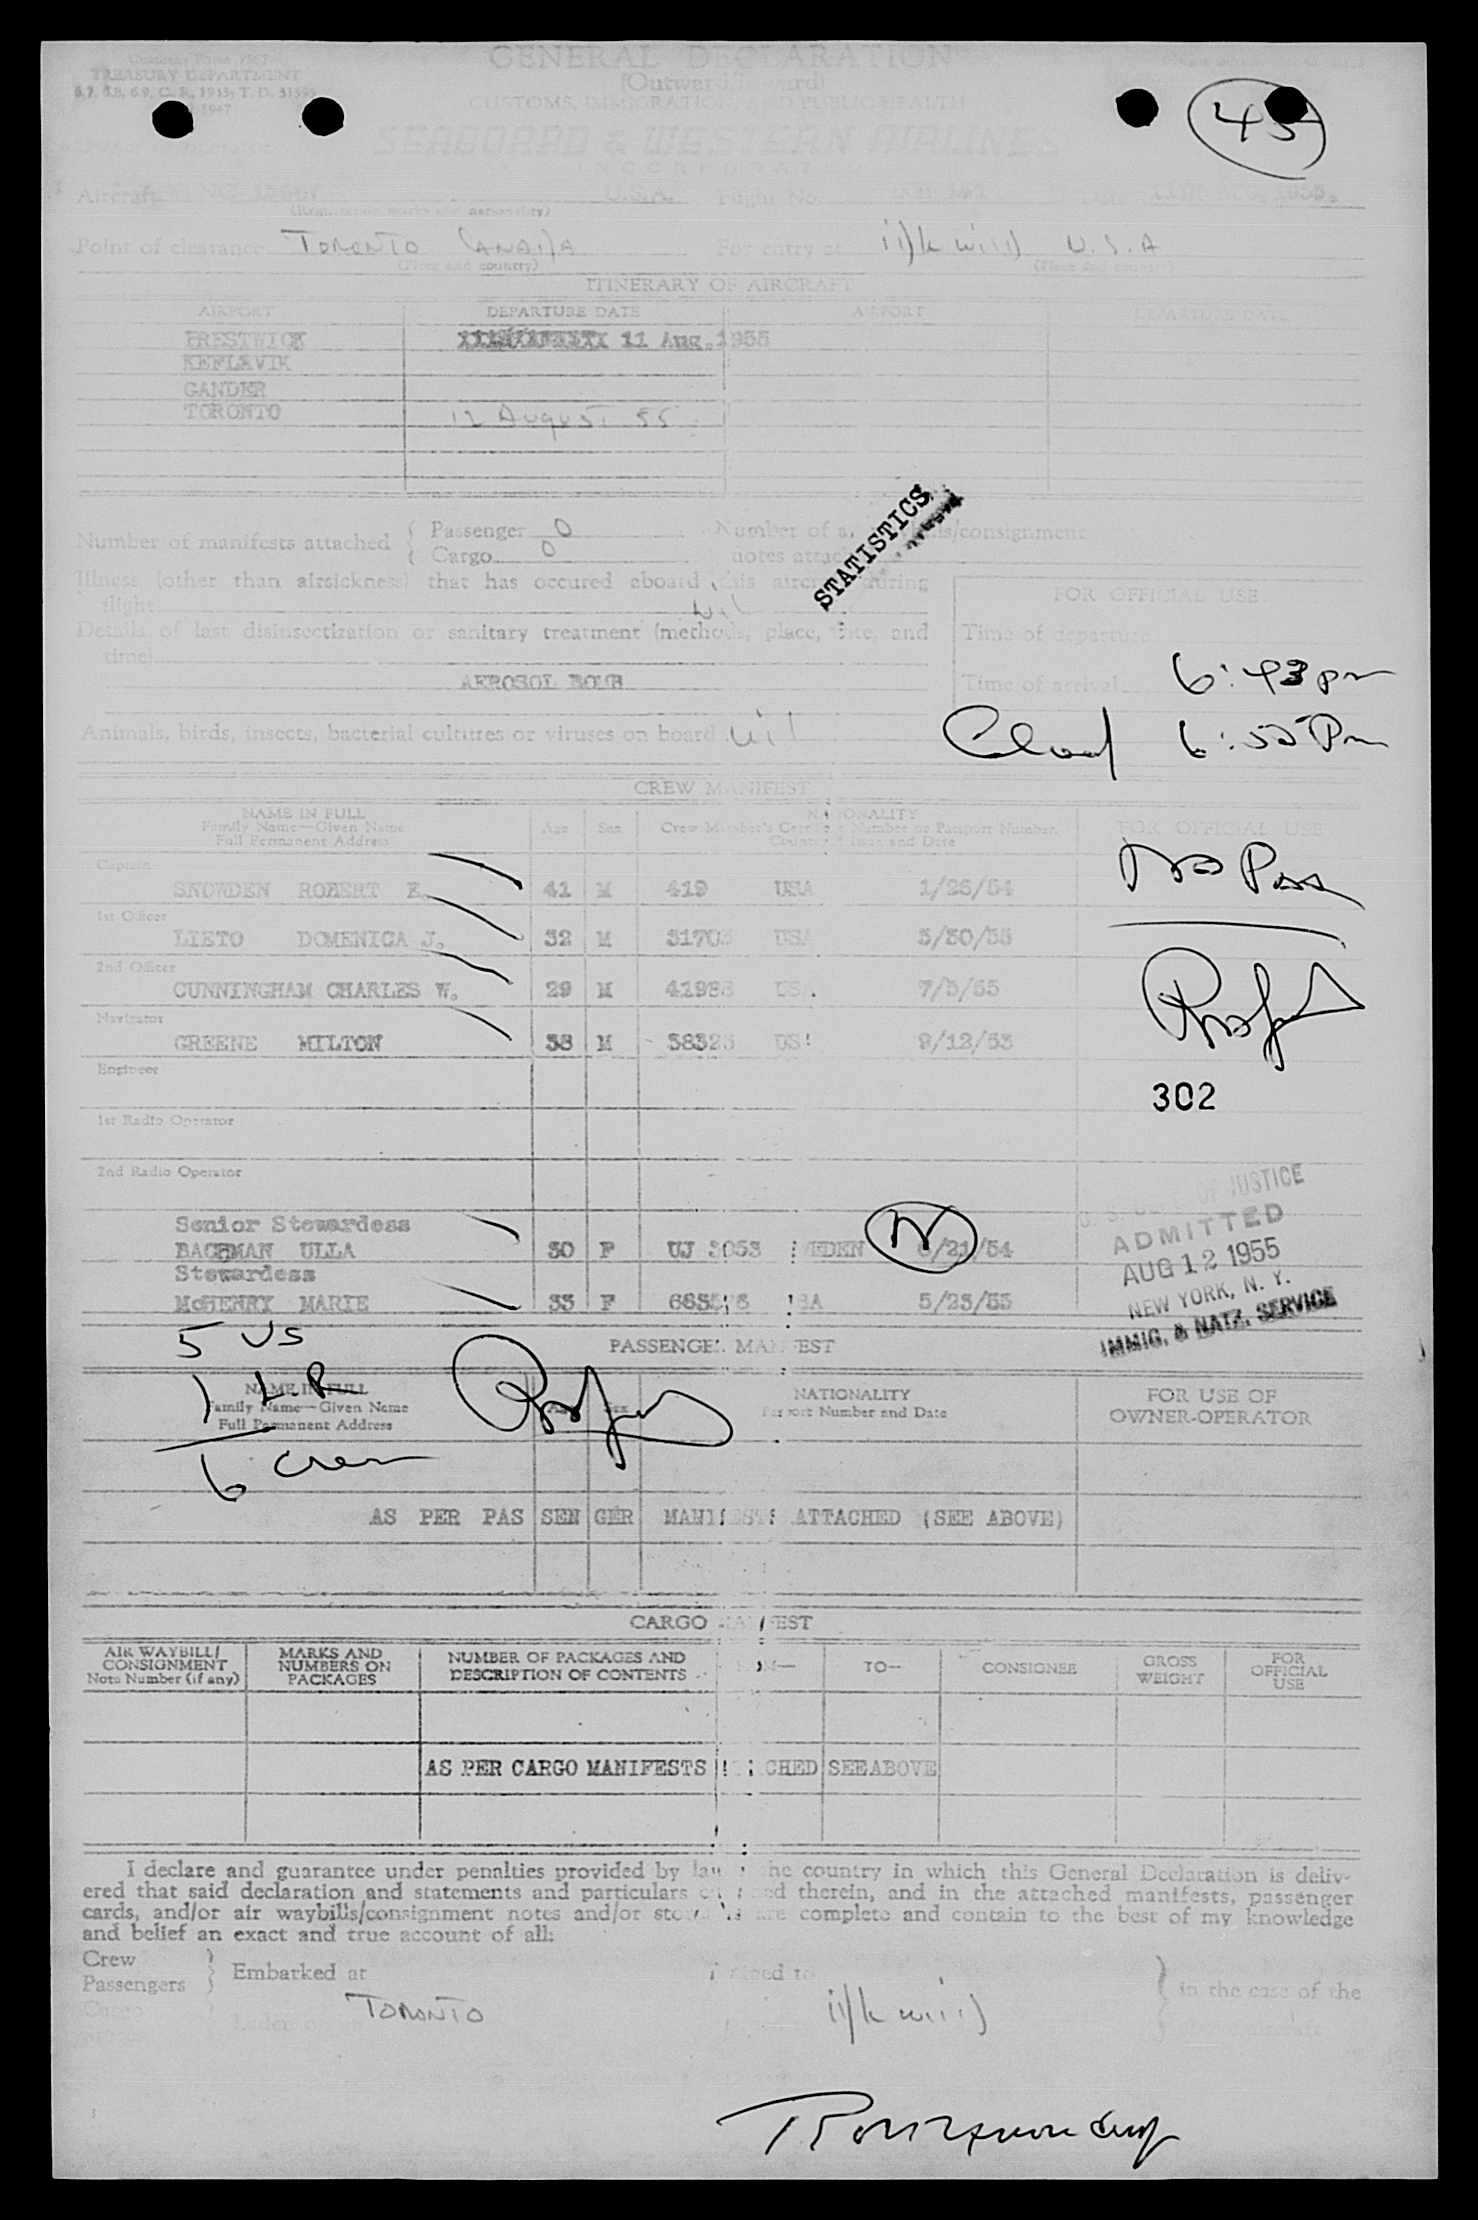 TREASURY DEPARTMENT
GENERAL DECLARATION
(Outward/Inward)
CUSTOMS, IMMIGRATION, AND PUBLIC HEALTH
45
SEABOARD & WESTERN AIRLINES
INCORPORATED
Aircraft U.S.A. Flight No. Date 11TH AUG. 1955.
(Registration marks and nationality)
Point of clearance TORONTO CANADA For entry at U.S.A
(Place and country) (Place and country)
ITINERARY OF AIRCRAFT
AIRPORT DEPARTURE DATE AIRPORT DEPARTURE DATE
PRESTWICK 11 Aug. 1955
KEFLAVIK
GANDER
TORONTO 12 August 55
STATISTICS
Number of manifests attached { Passenger 0 Number of air waybills/consignment
Cargo 0 notes attached
Illness (other than airsickness) that has occured aboard this aircraft during
flight Nil
FOR OFFICIAL USE
Details of last disinsectization or sanitary treatment (methods, place, date, and
time)
Time of departure
AEROSOL BOMB
Time of arrival 6:43 pm
Animals, birds, insects, bacterial cultures or viruses on board Nil
Clead 6:55 Pm
CREW MANIFEST
NAME IN FULL
Family Name—Given Name
Full Permanent Address
Age Sex
NATIONALITY
Crew Member's Certificate Number or Passport Number.
Country of Issue and Date
FOR OFFICIAL USE
Captain
SNOWDEN ROBERT E. 41 M 419 USA 1/26/54
No Pass
1st Officer
LIETO DOMENICA J. 32 M 31703 USA 3/30/55
2nd Officer
CUNNINGHAM CHARLES W. 29 M 41983 USA 7/5/55
Navigator
GREENE MILTON 38 M 38323 USA 9/12/53
Engineer
302
1st Radio Operator
2nd Radio Operator
Senior Stewardess
BACHMAN ULLA 30 F UJ 3053 SWEDEN 6/21/54
N
Stewardess
McHENRY MARIE 33 F USA 5/23/55
U. S. DEPT. OF JUSTICE
ADMITTED
AUG 12 1955
NEW YORK, N. Y.
IMMIG. & NATZ. SERVICE
5 US
1 L.R
6 Crew
PASSENGER MANIFEST
NAME IN FULL
Family Name—Given Name
Full Permanent Address
Age Sex
NATIONALITY
Passport Number and Date
FOR USE OF
OWNER-OPERATOR
AS PER PASSENGER MANIFESTS ATTACHED (SEE ABOVE)
CARGO MANIFEST
AIR WAYBILL/
CONSIGNMENT
Note Number (if any)
MARKS AND
NUMBERS ON
PACKAGES
NUMBER OF PACKAGES AND
DESCRIPTION OF CONTENTS
FROM—
TO—
CONSIGNEE
GROSS
WEIGHT
FOR
OFFICIAL
USE
AS PER CARGO MANIFESTS ATTACHED SEE ABOVE
I declare and guarantee under penalties provided by law of the country in which this General Declaration is deliv-
ered that said declaration and statements and particulars contained therein, and in the attached manifests, passenger
cards, and/or air waybills/consignment notes and/or stores lists are complete and contain to the best of my knowledge
and belief an exact and true account of all:
Crew
Passengers } Embarked at
Cargo
Laden on
TORONTO
} in the case of the